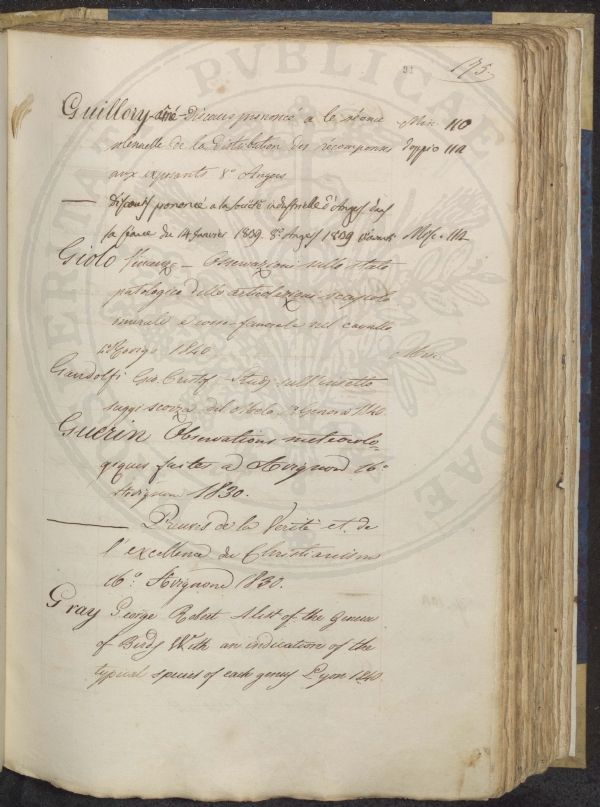 91 195
Guillory aîné Discours prononcé a la séance Misc. 110
solennelle de la distribution des récompenses doppio 112
aux exposants 8º Angers
— discours prononcé a la Société industrielle d'Angers dans
sa séance du 14 Janvier 1839. 8º Angers 1839 Misc. 112
Giolo Vincenzo – Osservazioni sullo stato
patologico delle articolazioni scapolo
omerale e coxo-femorale nel cavallo
Rovigo 1840 Misc.
Gandolfi Gio. Cristof. Studj sull'insetto
suggi scorza del Genova 1840
Guerin Observations météorolo-
giques faites a Avignon 16º
Avignon 1830.
— Preuves de la Verité et de
l'excellence du Christianisme
16º Avignone 1830.
Gray George Robert A list of the Genera
of Birds With an indication of the
typical species of each genus Lyon 1840.
PVBLICAE